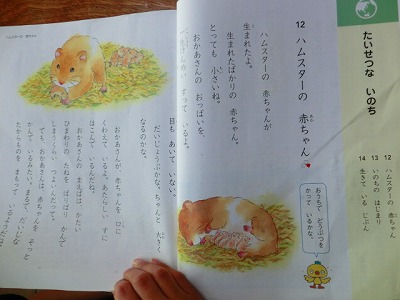 たいせつな いのち
12 ハムスターの 赤ちゃん
13 いのちの はじまり
14 生きて いる じぶん
12 ハムスターの 赤ちゃん
ハムスターの 赤ちゃんが
生まれたよ。
生まれたばかりの 赤ちゃん。
とっても 小さいね。
おかあさんの おっぱいを、
すって いるよ。
おうちで どうぶつを
かって いるかな。
目も あいて いない。
だいじょうぶかな。ちゃんと 大きく
なるのかな。
おかあさんが 赤ちゃんを 口に
くわえて いるよ。あたらしい すに
はこんで いるんだね。
おかあさんの まえばは かたい
ひまわりの たねを ばりばり かんで
しまうくらい つよいんだって。
でも おかあさん、赤ちゃんを そっと
かんで いるみたい。まるで だいじな
たからものを まもって いるようだね。
ハムスターの 赤ちゃん